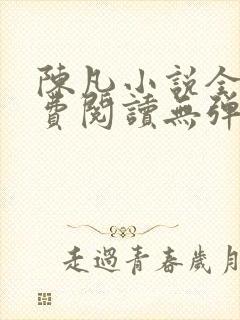 陳凡小說全
費閱讀無彈
走過青春歲月